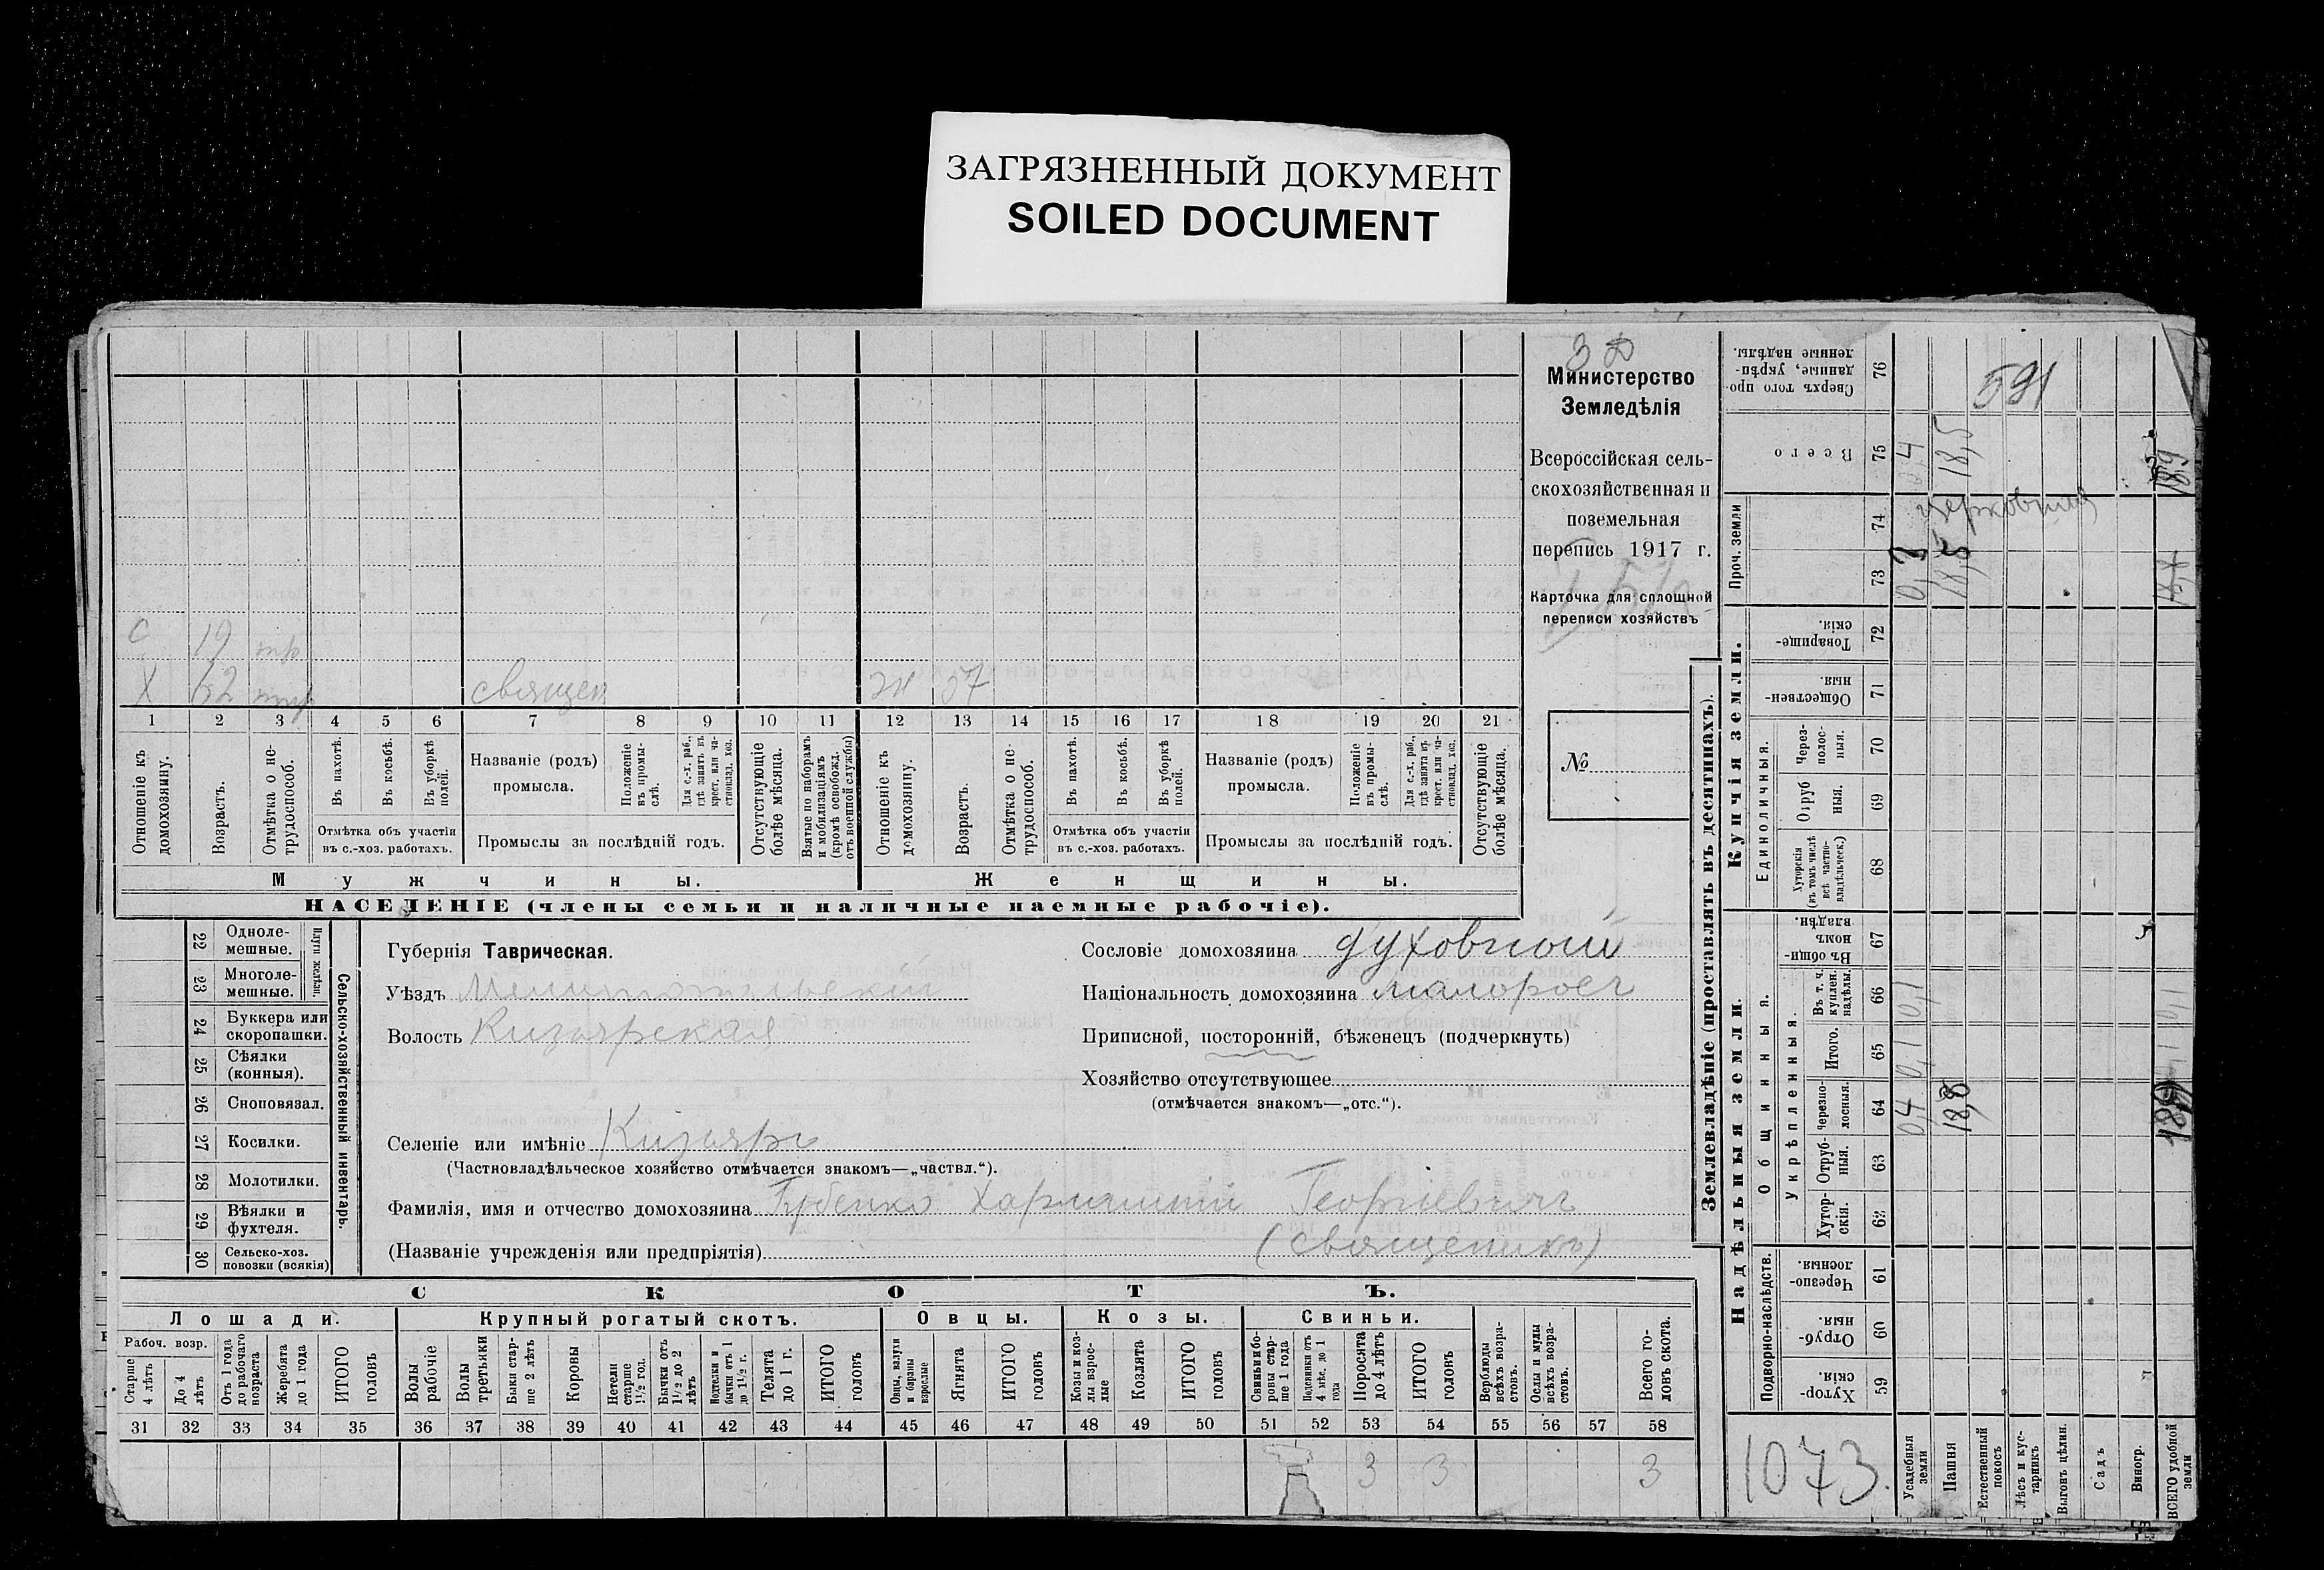 ЗАГРЯЗНЕННЫЙ ДОКУМЕНТ
SOILED DOCUMENT
Министерство
Земледѣлія
Всероссійская сель-
скохозяйственная и
поземельная
перепись 1917 г.
Карточка для сплошной
переписи хозяйствъ
№
С 19
Х 62 священ 57
1 2 3 4 5 6 7 8 9 10 11 12 13 14 15 16 17 18 19 20 21
Отношеніе къ домохозяину.
Возрастъ.
Отмѣтка о не-трудоспособ.
Въ пахотѣ.
Въ косьбѣ.
Въ уборкѣ полей.
Отмѣтка объ участіи
въ с.-хоз. работахъ.
Названіе (родъ)
промысла.
Положеніе въ промы-слѣ.
Для с.-х. раб., гдѣ занятъ въ крест. или ча-стновлад. хоз.
Промыслы за послѣдній годъ.
Отсутствующіе болѣе мѣсяца.
Взятые по наборамъ и мобилизаціямъ (кромѣ освобожд. отъ военной службы)
Отношеніе къ домохозяину.
Возрастъ.
Отмѣтка о не-трудоспособ.
Въ пахотѣ.
Въ косьбѣ.
Въ уборкѣ полей.
Отмѣтка объ участіи
въ с.-хоз. работахъ.
Названіе (родъ)
промысла.
Положеніе въ промы-слѣ.
Для с.-х. раб., гдѣ занята въ крест. или ча-стновлад. хоз.
Промыслы за послѣдній годъ.
Отсутствующіе болѣе мѣсяца.
Мужчины.
Женщины.
НАСЕЛЕНІЕ (члены семьи и наличные наемные рабочіе).
22 Одноле-мешные.
23 Многоле-мешные.
Плуги желѣзн.
24 Буккера или скоропашки.
25 Сѣялки (конныя).
26 Сноповязал.
27 Косилки.
28 Молотилки.
29 Вѣялки и фухтеля.
30 Сельско-хоз. повозки (всякія)
Сельско-хозяйственный инвентарь.
Губернія Таврическая.
Уѣздъ Мелитопольскій
Волость Кизіярская
Селеніе или имѣніе Кизіяръ
(Частновладѣльческое хозяйство отмѣчается знакомъ—„частвл.“).
Фамилія, имя и отчество домохозяина Губенко Харлампій Георгіевичъ
(Названіе учрежденія или предпріятія) (священикъ)
Сословіе домохозяина духовной
Національность домохозяина малоросъ
Приписной, посторонній, бѣженецъ (подчеркнуть)
Хозяйство отсутствующее
(отмѣчается знакомъ—„отс.“).
СКОТЪ.
Лошади. Крупный рогатый скотъ. Овцы. Козы. Свиньи.
Рабоч. возр.
Старше 4 лѣтъ
До 4 лѣтъ
Отъ 1 года до рабочаго возраста
Жеребята до 1 года
ИТОГО головъ
Волы рабочіе
Волы третьяки
Быки стар-ше 2 лѣтъ
Коровы
Нетели старше 1½ год.
Бычки отъ 1½ до 2 лѣтъ
Нетелки и бычки отъ 1 до 1½ г.
Телята до 1 г.
ИТОГО головъ
Овцы, валухи и бараны взрослые
Ягнята
ИТОГО головъ
Козы и коз-лы взрос-лые
Козлята
ИТОГО головъ
Свиньи и бо-ровы стар-ше 1 года
Подсвинки отъ 4 мѣс. до 1 года
Поросята до 4 лѣтъ
ИТОГО головъ
Верблюды всѣхъ возра-стовъ.
Ослы и мулы всѣхъ возра-стовъ.
Всего го-ловъ скота.
31 32 33 34 35 36 37 38 39 40 41 42 43 44 45 46 47 48 49 50 51 52 53 54 55 56 57 58
3 3 3
Землевладѣніе (проставлять въ десятинахъ).
Надѣльныя земли.
Купчія земли.
Проч. земли
Подворно-наслѣдств.
Общинныя.
Укрѣпленныя.
Единоличныя.
Сверхъ того про-данные, укрѣп-ленные надѣлы. 76
591
Всего 75
18,5
74
церковная
73
18,5
Товарище-скія. 72
Обществен-ныя. 71
Через-полос-ныя. 70
Отруб ныя. 69
Хуторскія (въ томъ числѣ всѣ частно-владѣльческ.) 68
Въ общи-номъ владѣн. 67
Въ т. ч. куплен. надѣлы. 66 0,1
Итого. 65 0,1
Черезпо-лосныя. 64 0,4
Отруб-ныя. 63
Хутор-скія. 62
Черезпо-лосныя. 61
Отруб-ныя. 60
Хутор-скія. 59
1073.
Усадебныя земли
Пашня
Естественный покосъ
Лѣсъ и кус-тарникъ
Выгонъ цѣлин.
Садъ
Виногр.
ВСЕГО удобной земли